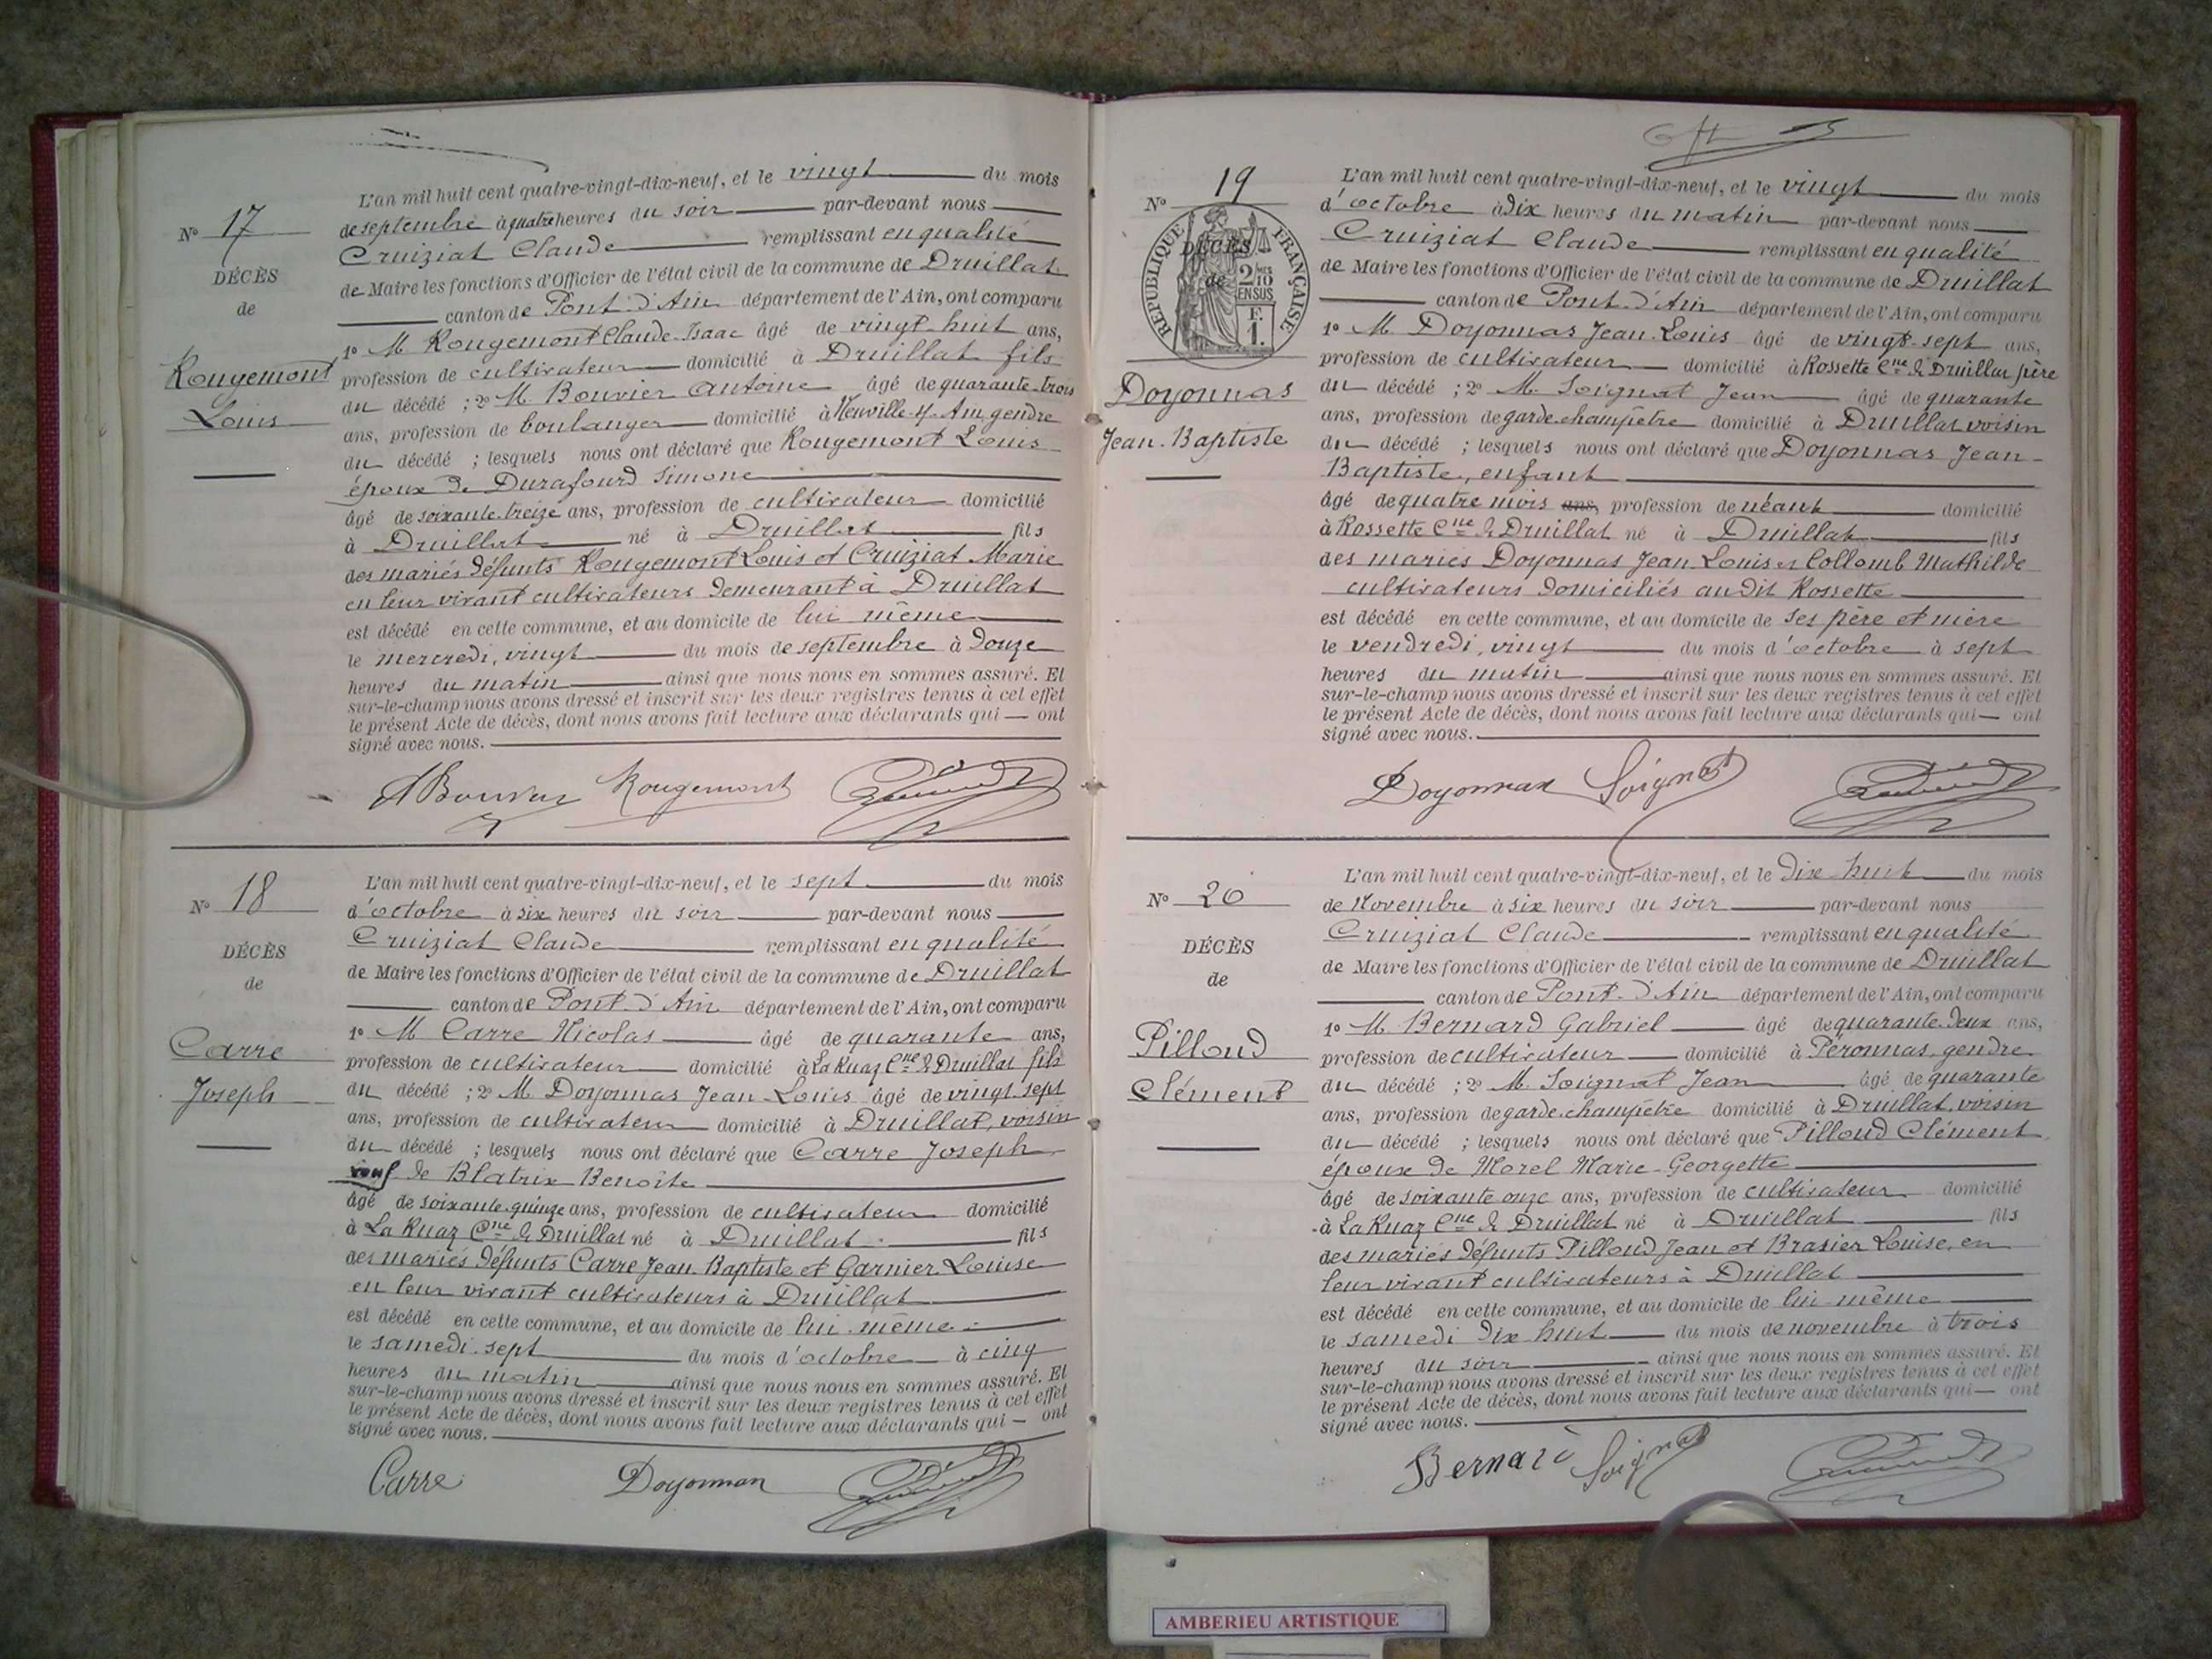 L'an mil huit cent quatre-vingt-dix-neuf, et le vingt du mois
N° 17
de septembre à quatre heures du soir par-devant nous
Cruiziat Claude remplissant en qualité
DÉCÈS
de Maire les fonctions d'Officier de l'état civil de la commune de Druillat
de
canton de Pont-d'Ain département de l'Ain, ont comparu
1° M Rougemont Claude-Isaac âgé de vingt-huit ans,
Rougemont
profession de cultivateur domicilié à Druillat fils
du décédé ; 2° M. Bouvier Antoine âgé de quarante-trois
Louis
ans, profession de boulanger domicilié à Neuville-s/-Ain gendre
du décédé ; lesquels nous ont déclaré que Rougemont Louis
époux de Durafourd Simone
âgé de soixante-treize ans, profession de cultivateur domicilié
à Druillat né à Druillat fils
des mariés défunts Rougemont Louis et Cruiziat Marie
en leur vivant cultivateurs demeurant à Druillat
est décédé en cette commune, et au domicile de lui même
le mercredi, vingt du mois de septembre à douze
heures du matin ainsi que nous nous en sommes assuré. Et
sur-le-champ nous avons dressé et inscrit sur les deux registres tenus à cet effet
le présent Acte de décès, dont nous avons fait lecture aux déclarants qui — ont
signé avec nous.
ABouvier Rougemont
L'an mil huit cent quatre-vingt-dix-neuf, et le sept du mois
N° 18
d'octobre à six heures du soir par-devant nous
Cruiziat Claude remplissant en qualité
DÉCÈS
de Maire les fonctions d'Officier de l'état civil de la commune de Druillat
de
canton de Pont-d'Ain département de l'Ain, ont comparu
1° M Carre Nicolas âgé de quarante ans,
Carre
profession de cultivateur domicilié à La Ruaz Cne de Druillat fils
Joseph
du décédé ; 2° M. Doyonnas Jean-Louis âgé de vingt-sept
ans, profession de cultivateur domicilié à Druillat, voisin
du décédé ; lesquels nous ont déclaré que Carre Joseph
veuf de Blatrix Benoîte
âgé de soixante-quinze ans, profession de cultivateur domicilié
à La Ruaz Cne de Druillat né à Druillat fils
des mariés défunts Carre Jean-Baptiste et Garnier Louise
en leur vivant cultivateurs à Druillat
est décédé en cette commune, et au domicile de lui-même
le samedi, sept du mois d'octobre à cinq
heures du matin ainsi que nous nous en sommes assuré. Et
sur-le-champ nous avons dressé et inscrit sur les deux registres tenus à cet effet
le présent Acte de décès, dont nous avons fait lecture aux déclarants qui — ont
signé avec nous.
Carre Doyonnan
L'an mil huit cent quatre-vingt-dix-neuf, et le vingt du mois
N° 19
d'octobre à dix heures du matin par-devant nous
RÉPUBLIQUE FRANÇAISE
DÉCÈS
de
2/10 EN SUS
F. 1.
Cruiziat Claude remplissant en qualité
de Maire les fonctions d'Officier de l'état civil de la commune de Druillat
canton de Pont-d'Ain département de l'Ain, ont comparu
1° M Doyonnas Jean-Louis âgé de vingt-sept ans,
profession de cultivateur domicilié à Rossette Cne de Druillat père
Doyonnas
du décédé ; 2° M. Soignat Jean âgé de quarante
ans, profession de garde-champêtre domicilié à Druillat voisin
Jean-Baptiste
du décédé ; lesquels nous ont déclaré que Doyonnas Jean-
Baptiste, enfant
âgé de quatre mois ans, profession de néant domicilié
à Rossette Cne de Druillat né à Druillat fils
des mariés Doyonnas Jean Louis et Collomb Mathilde
cultivateurs domiciliés au dit Rossette
est décédé en cette commune, et au domicile de ses père et mère
le vendredi, vingt du mois d'octobre à sept
heures du matin ainsi que nous nous en sommes assuré. Et
sur-le-champ nous avons dressé et inscrit sur les deux registres tenus à cet effet
le présent Acte de décès, dont nous avons fait lecture aux déclarants qui — ont
signé avec nous.
Doyonnax Soignat
L'an mil huit cent quatre-vingt-dix-neuf, et le dix-huit du mois
N° 20
de Novembre à six heures du soir par-devant nous
Cruiziat Claude remplissant en qualité
DÉCÈS
de Maire les fonctions d'Officier de l'état civil de la commune de Druillat
de
canton de Pont-d'Ain département de l'Ain, ont comparu
1° M Bernard Gabriel âgé de quarante-deux ans,
Pilloud
profession de cultivateur domicilié à Péronnas, gendre
Clément
du décédé ; 2° M. Soignat Jean âgé de quarante
ans, profession de garde-champêtre domicilié à Druillat, voisin
du décédé ; lesquels nous ont déclaré que Pilloud Clément
époux de Morel Marie-Georgette
âgé de soixante onze ans, profession de cultivateur domicilié
à La Ruaz Cne de Druillat né à Druillat fils
des mariés défunts Pilloud Jean et Brasier Louise, en
leur vivant cultivateurs à Druillat
est décédé en cette commune, et au domicile de lui-même
le samedi dix huit du mois de novembre à trois
heures du soir ainsi que nous nous en sommes assuré. Et
sur-le-champ nous avons dressé et inscrit sur les deux registres tenus à cet effet
le présent Acte de décès, dont nous avons fait lecture aux déclarants qui — ont
signé avec nous.
Bernard Soignat
AMBERIEU ARTISTIQUE